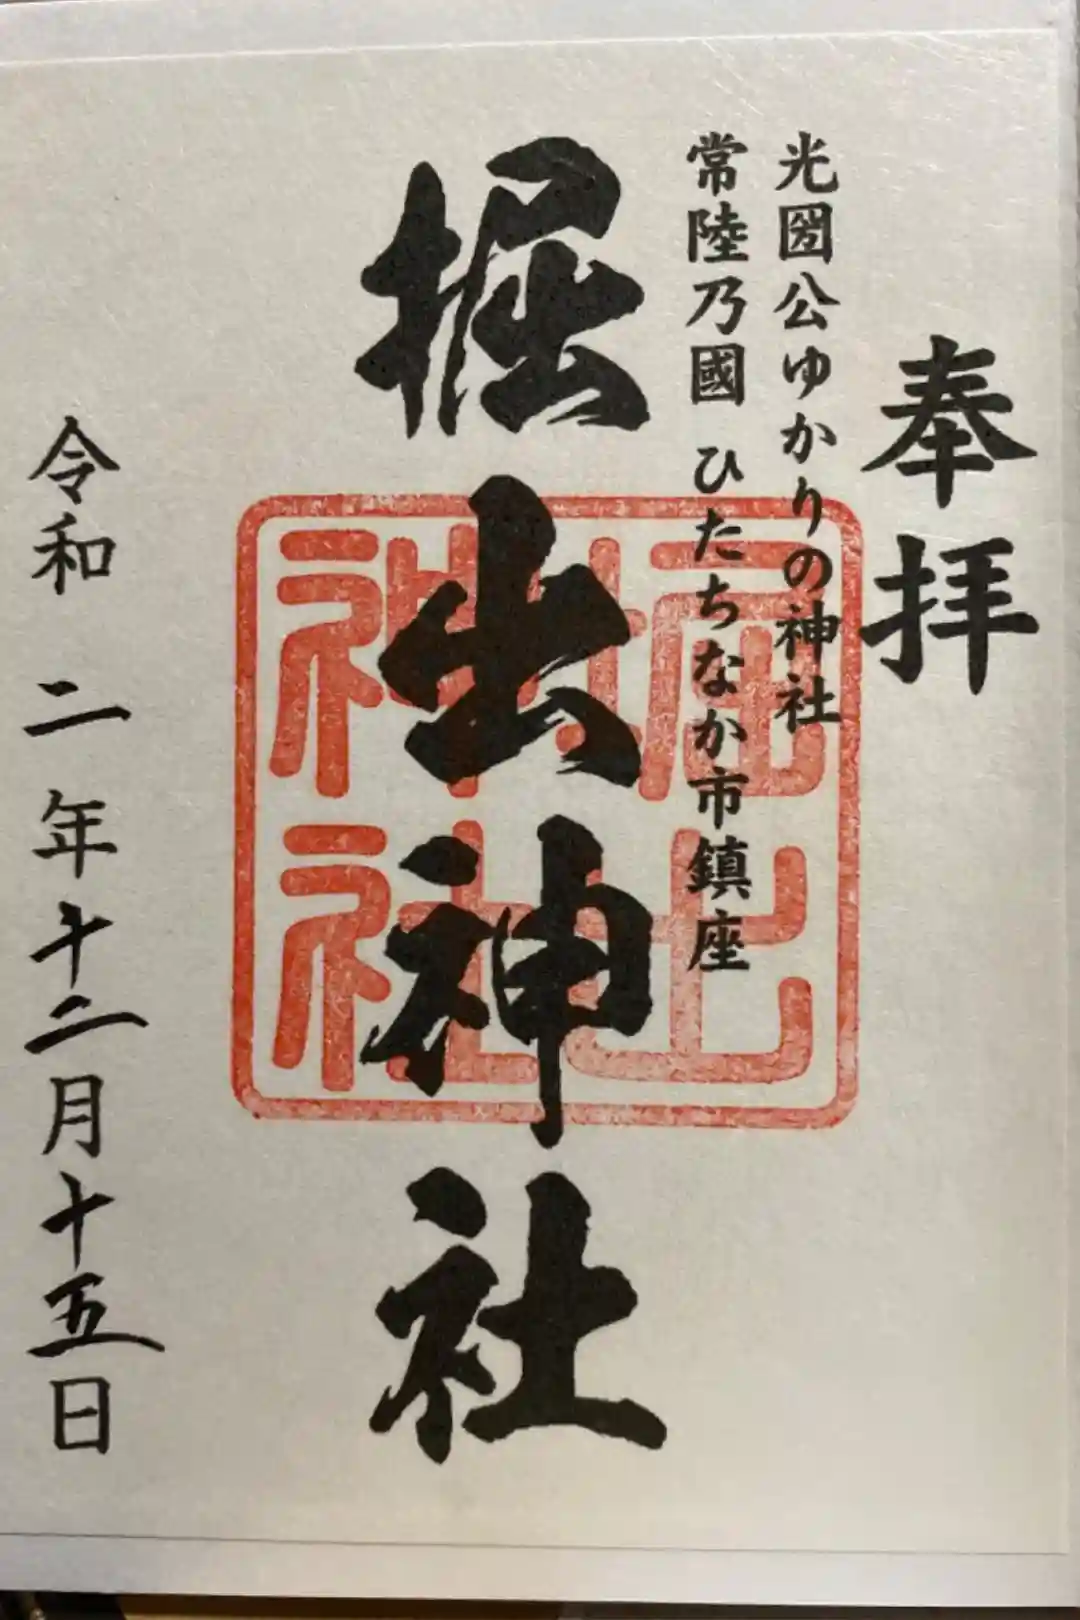 奉拝
光圀公ゆかりの神社
常陸乃國 ひたちなか市鎮座
掘出神社
堀出神社
令和 二 年十二月十五日